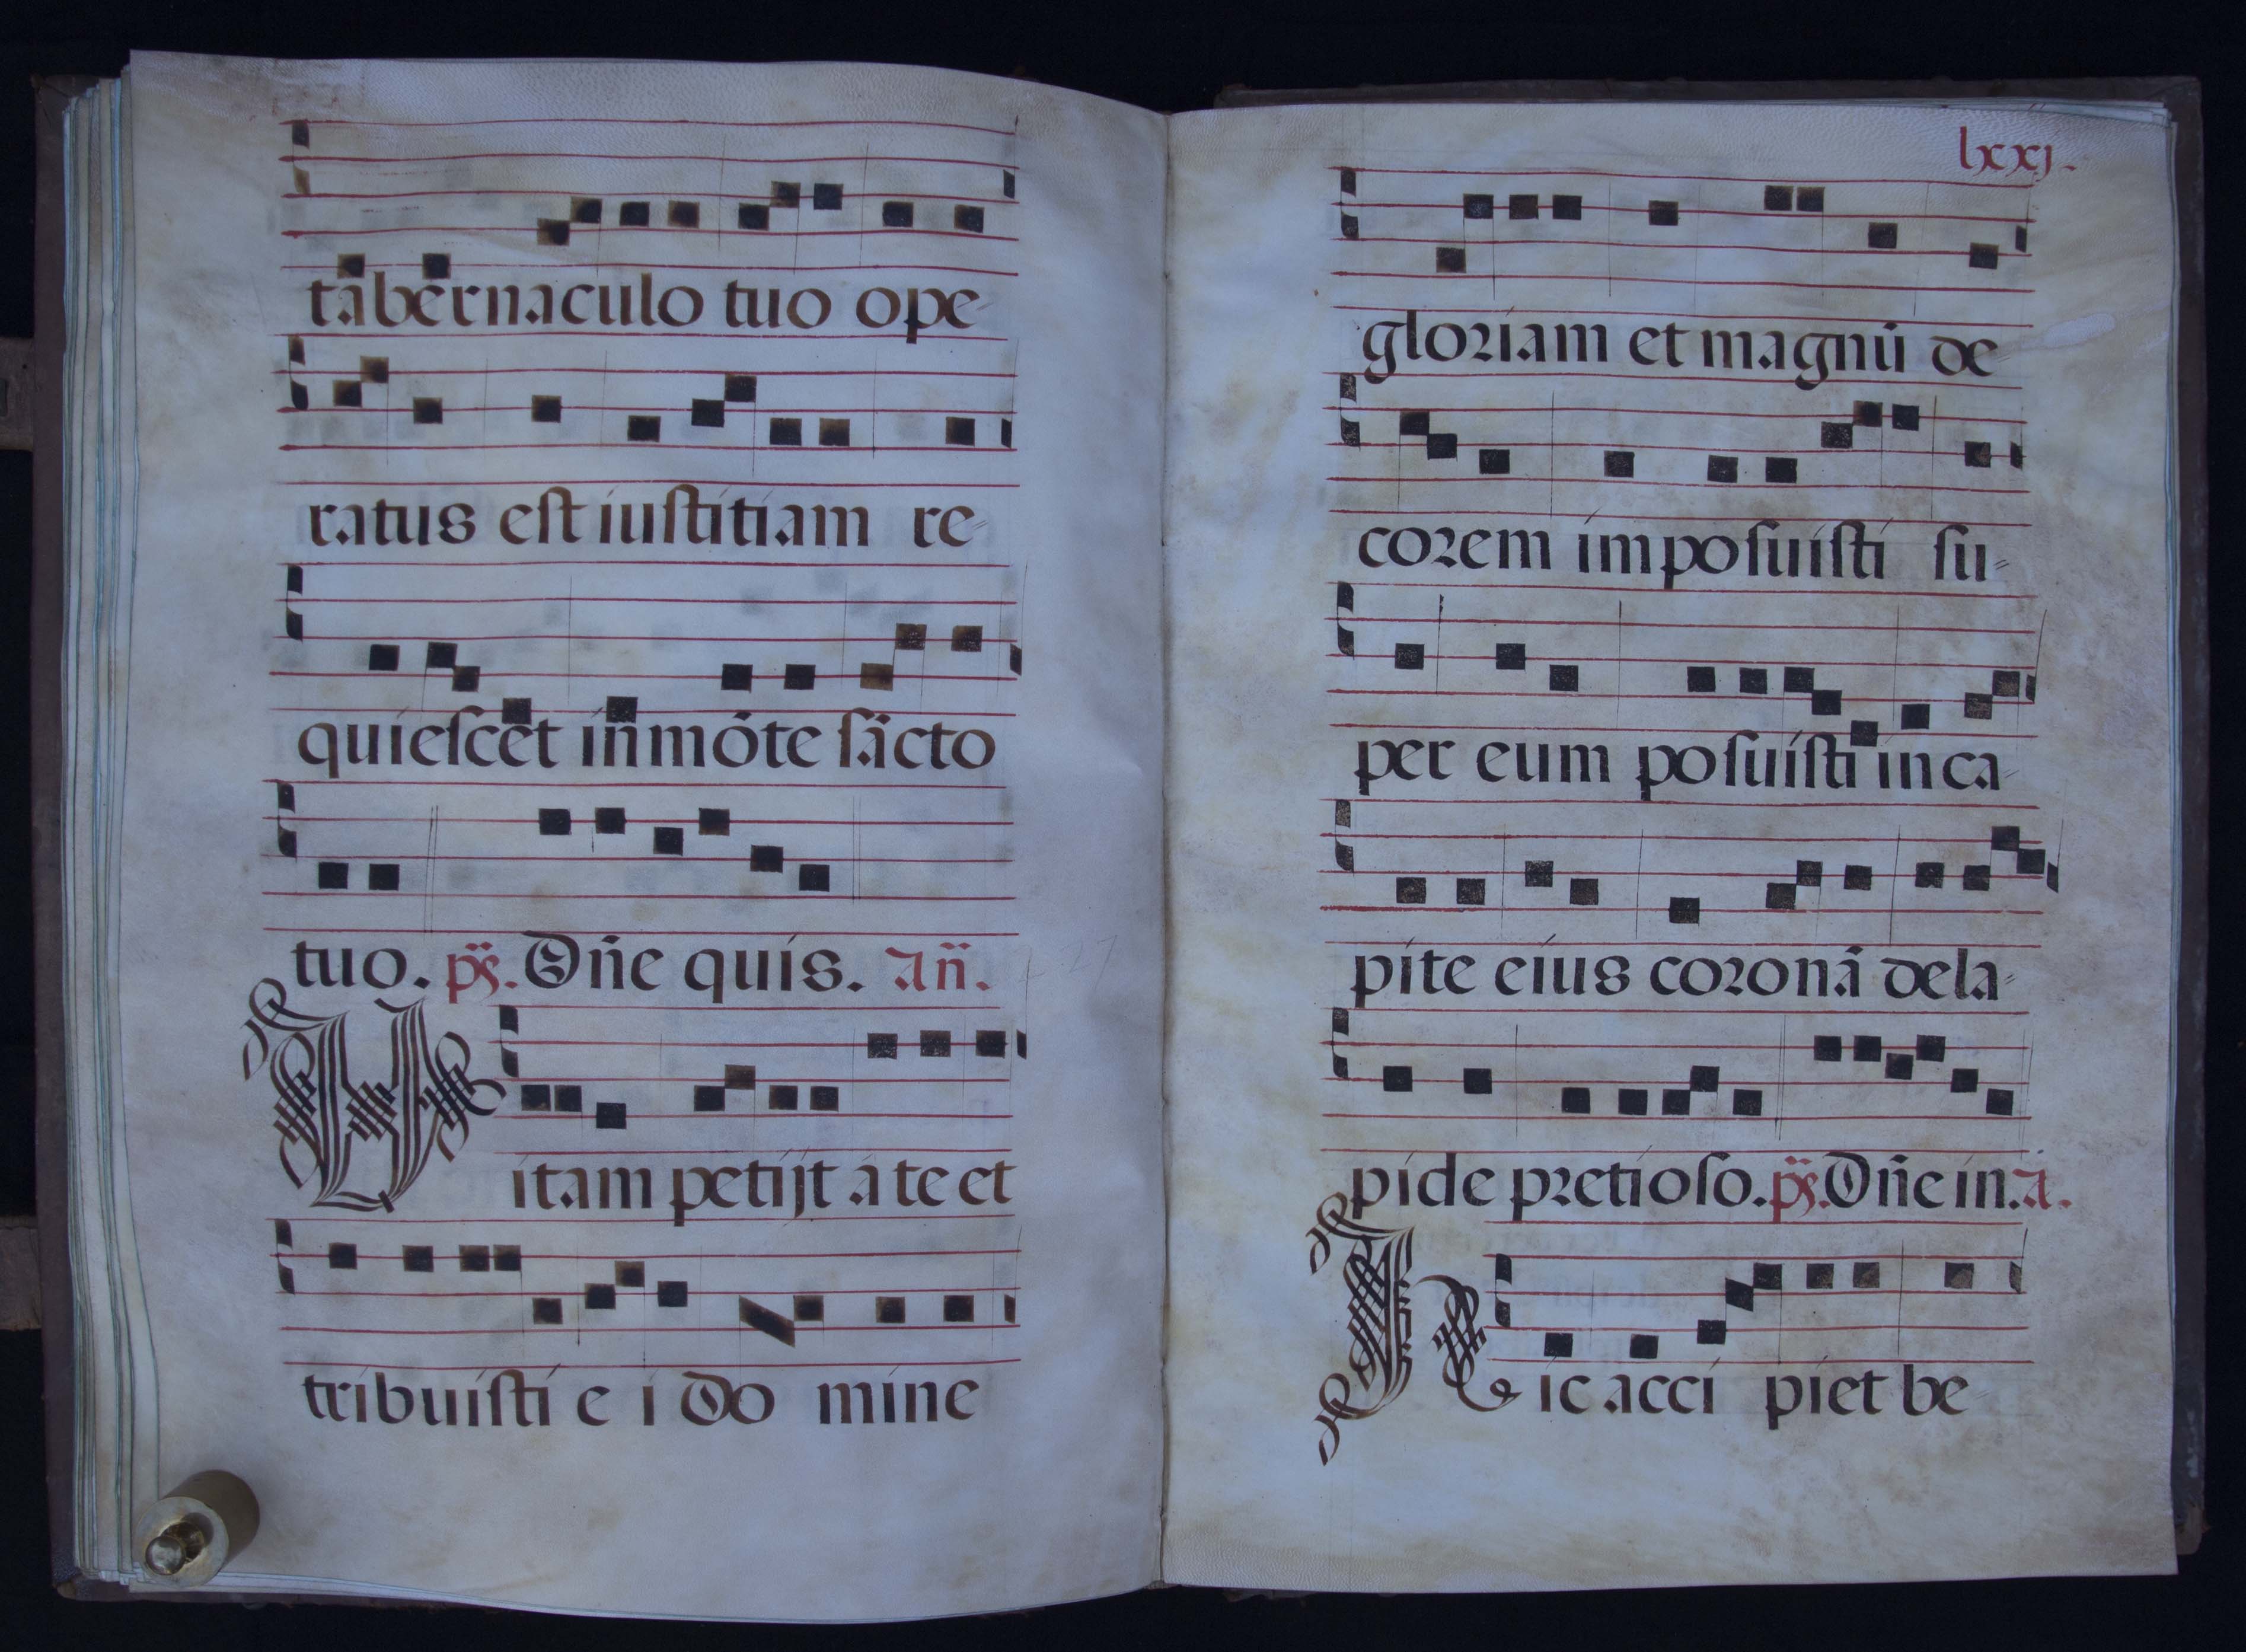 tabernaculo tuo ope-
ratus est iustitiam re-
quiescet in mōte sācto
tuo. ps̄. Dn̄e quis. An̄.
Vitam petijt a te et
tribuisti e i Do mine
lxxj.
gloriam et magnū de
corem imposuisti su-
per eum posuisti in ca-
pite eius coronā de la-
pide pretioso. ps̄. Dn̄e in. A.
Hic acci piet be